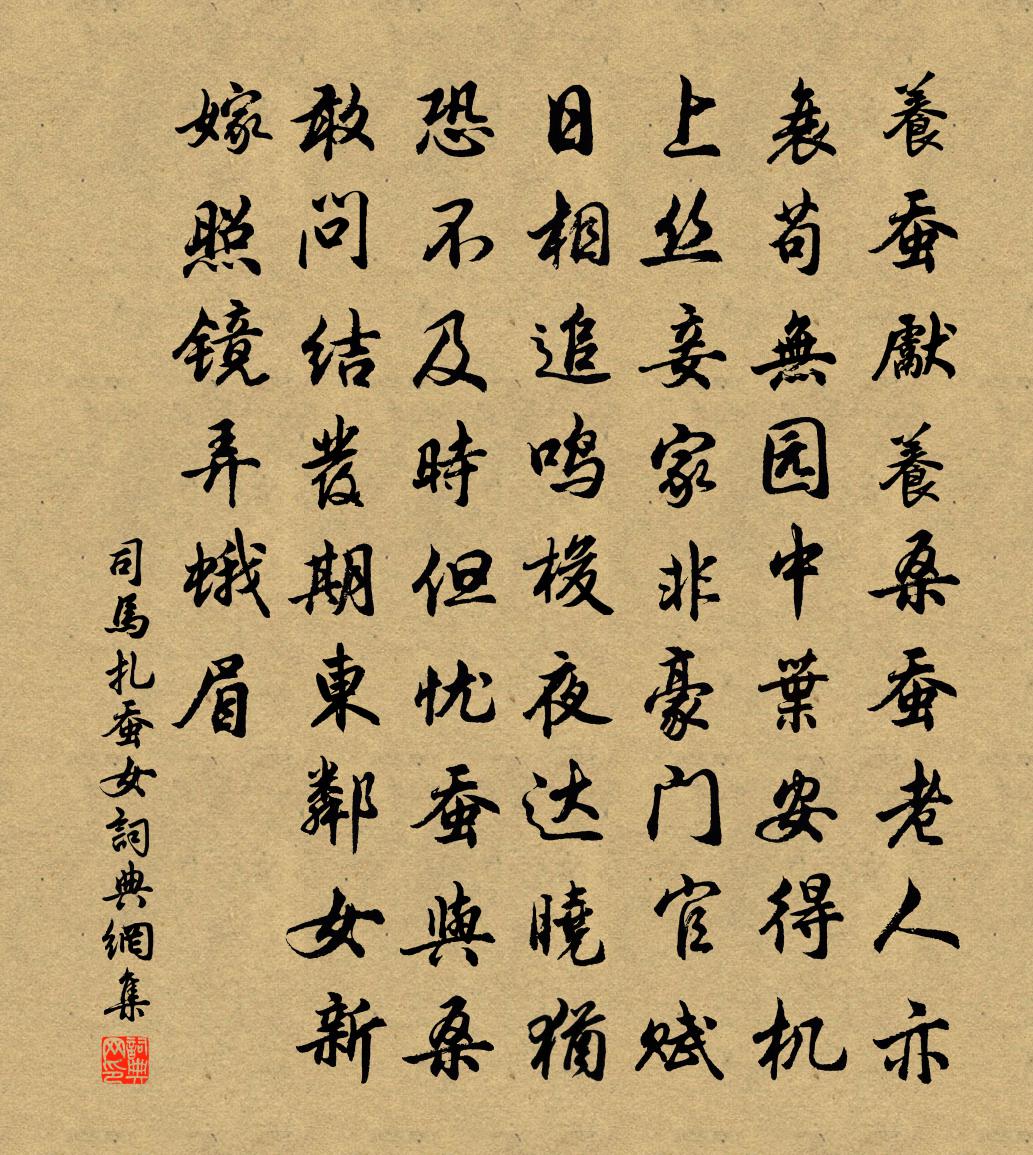 養蚕獻養桑蚕老人亦
衰苟無园中葉安得机
上丝妾家非豪门官赋
日相追鸣梭夜达曉猶
恐不及時但忧蚕與桑
敢问结發期東鄰女新
嫁照镜弄蛾眉
司馬扎蚕女詞典網集
詞典网印